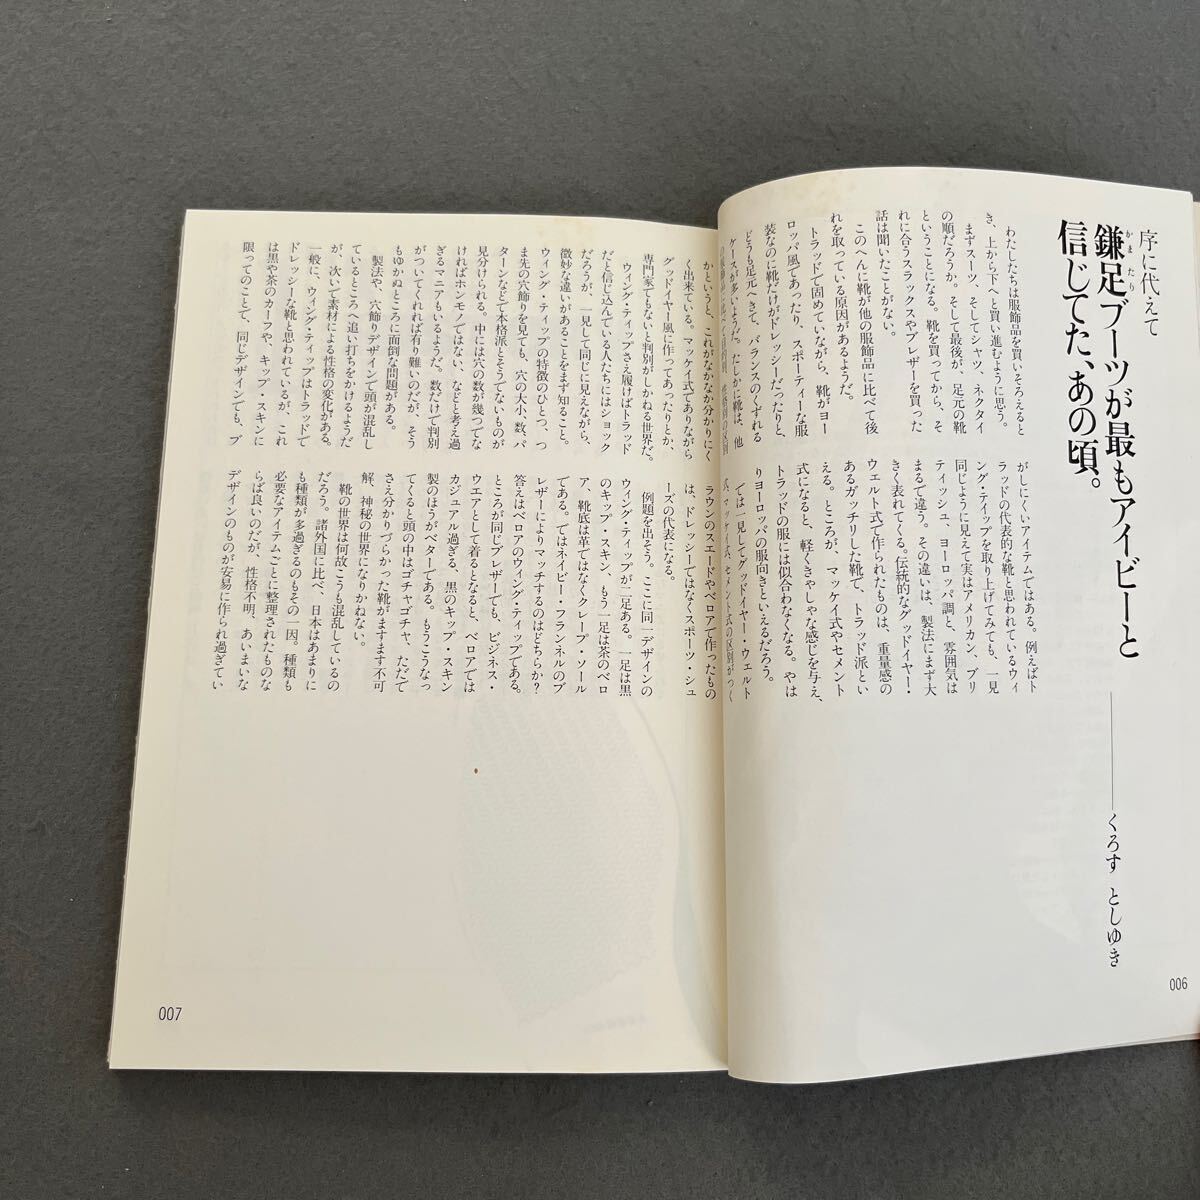 序に代えて
鎌足ブーツが最もアイビーと
かまたり
信じてた、あの頃。
くろす としゆき
わたしたちは服飾品を買いそろえると
き、上から下へと買い進むように思う。
まずスーツ、そしてシャツ、ネクタイ
の順だろうか。そして最後が、足元の靴
ということになる。靴を買ってから、そ
れに合うスラックスやブレザーを買った
話は聞いたことがない。
このへんに靴が他の服飾品に比べて後
れを取っている原因があるようだ。
トラッドで固めていながら、靴がヨー
ロッパ風であったり、スポーティーな服
装なのに靴だけがドレッシーだったりと、
どうも足元へきて、バランスのくずれる
ケースが多いようだ。たしかに靴は、他
がしにくいアイテムではある。例えばト
ラッドの代表的な靴と思われているウィ
ング・ティップを取り上げてみても、一見
同じように見えて実はアメリカン、ブリ
ティッシュ、ヨーロッパ調と、雰囲気は
まるで違う。その違いは、製法にまず大
きく表れてくる。伝統的なグッドイヤー・
ウェルト式で作られたものは、重量感の
あるガッチリした靴で、トラッド派とい
える。ところが、マッケイ式やセメント
式になると、軽くきゃしゃな感じを与え、
トラッドの服には似合わなくなる。やは
りヨーロッパの服向きといえるだろう。
では一見してグッドイヤー・ウェルト
式、マッケイ式、セメント式の区別がつく
006
かというと、これがなかなか分かりにく
く出来ている。マッケイ式でありながら
グッドイヤー風に作ってあったりとか、
専門家でもないと判別がしかねる世界だ。
ウィング・ティップさえ履けばトラッド
だと信じ込んでいる人たちにはショック
だろうが、一見して同じに見えながら、
微妙な違いがあることをまず知ること。
ウィング・ティップの特徴のひとつ、つ
ま先の穴飾りを見ても、穴の大小、数、パ
ターンなどで本格派とそうでないものが
見分けられる。中には穴の数が幾つでな
ければホンモノではない、などと考え過
ぎるマニアもいるようだ。数だけで判別
がついてくれれば有り難いのだが、そう
もゆかぬところに面倒な問題がある。
製法や、穴飾りデザインで頭が混乱し
ているところへ追い打ちをかけるようだ
が、次いで素材による性格の変化がある。
一般に、ウィング・ティップはトラッドで
ドレッシーな靴と思われているが、これ
は黒や茶のカーフや、キップ・スキンに
限ってのことで、同じデザインでも、ブ
ラウンのスエードやベロアで作ったもの
は、ドレッシーではなくスポーツ・シュ
ーズの代表になる。
例題を出そう。ここに同一デザインの
ウィング・ティップが二足ある。一足は黒
のキップ・スキン、もう一足は茶のベロ
ア、靴底は革ではなくクレープ・ソール
である。ではネイビー・フランネルのブ
レザーによりマッチするのはどちらか?
答えはベロアのウィング・ティップである。
ところが同じブレザーでも、ビジネス・
ウエアとして着るとなると、ベロアでは
カジュアル過ぎる、黒のキップ・スキン
製のほうがベターである。もうこうなっ
てくると頭の中はゴチャゴチャ、ただで
さえ分かりづらかった靴がますます不可
解、神秘の世界になりかねない。
靴の世界は何故こうも混乱しているの
だろう。諸外国に比べ、日本はあまりに
も種類が多過ぎるのもその一因。種類も
必要なアイテムごとに整理されたものな
らば良いのだが、性格不明、あいまいな
デザインのものが安易に作られ過ぎてい
007